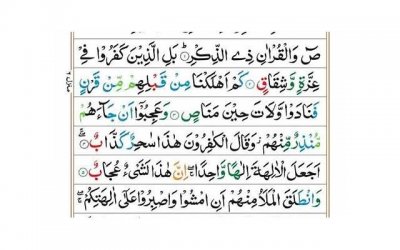 صٓ وَالْقُرْاٰنِ ذِی الذِّكْرِؕ۝۱ بَلِ الَّذِیْنَ كَفَرُوْا فِیْ
عِزَّةٍ وَّشِقَاقٍ۝۲ كَمْ اَهْلَكْنَا مِنْ قَبْلِهِمْ مِّنْ قَرْنٍ
فَنَادَوْا وَّلَاتَ حِیْنَ مَنَاصٍ۝۳ وَعَجِبُوْۤا اَنْ جَآءَهُمْ
مُّنْذِرٌ مِّنْهُمْ٘ وَقَالَ الْكٰفِرُوْنَ هٰذَا سٰحِرٌ كَذَّابٌۖۚ۝۴
اَجَعَلَ الْاٰلِهَةَ اِلٰهًا وَّاحِدًاۖۚ اِنَّ هٰذَا لَشَیْءٌ عُجَابٌ۝۵
وَانْطَلَقَ الْمَلَاُ مِنْهُمْ اَنِ امْشُوْا وَاصْبِرُوْا عَلٰۤی اٰلِهَتِكُمْۖۚ